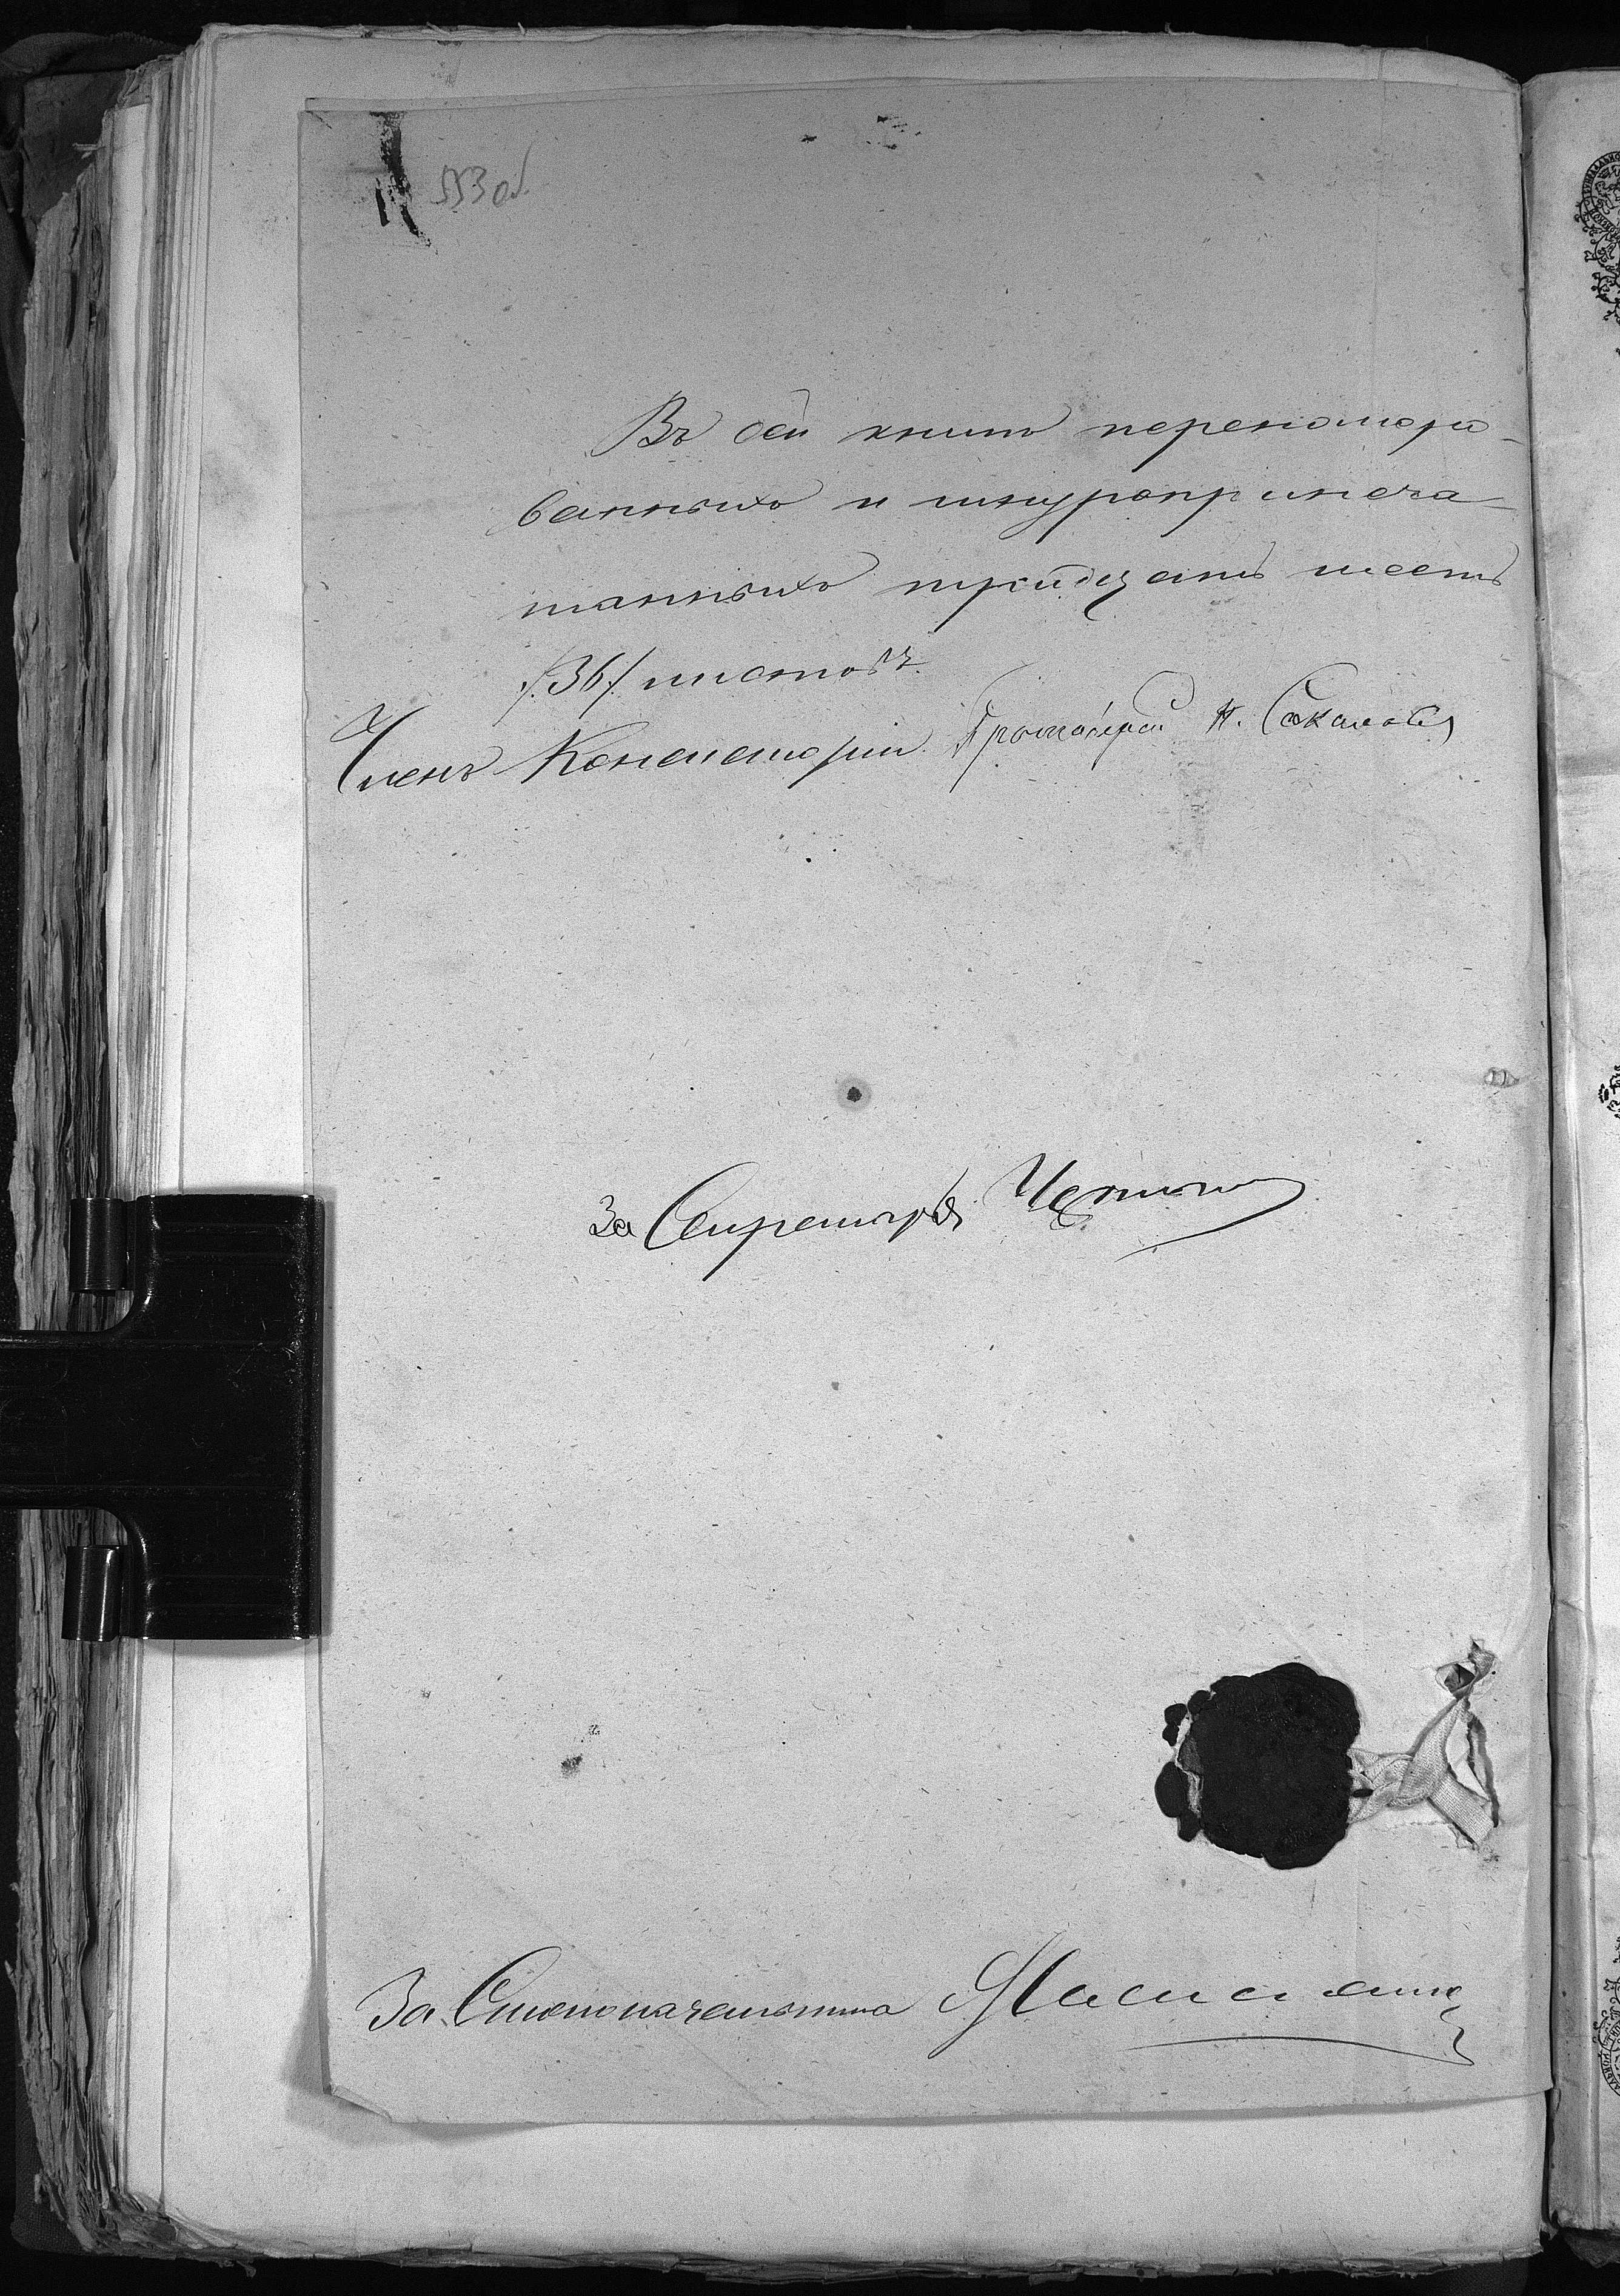 553 об
Въ сей книгѣ перенумеро-
ванныхъ и шнуроприпеча-
танныхъ тридцать шесть
/36/ листовъ.
Членъ Консисторіи Протоіерей Н. Соколовъ
За Секретаря
За Столоначальника